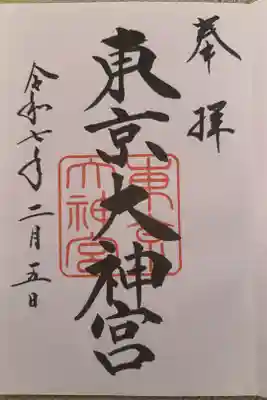 奉拝
東京大神宮
東京大神宮
令和七年二月五日